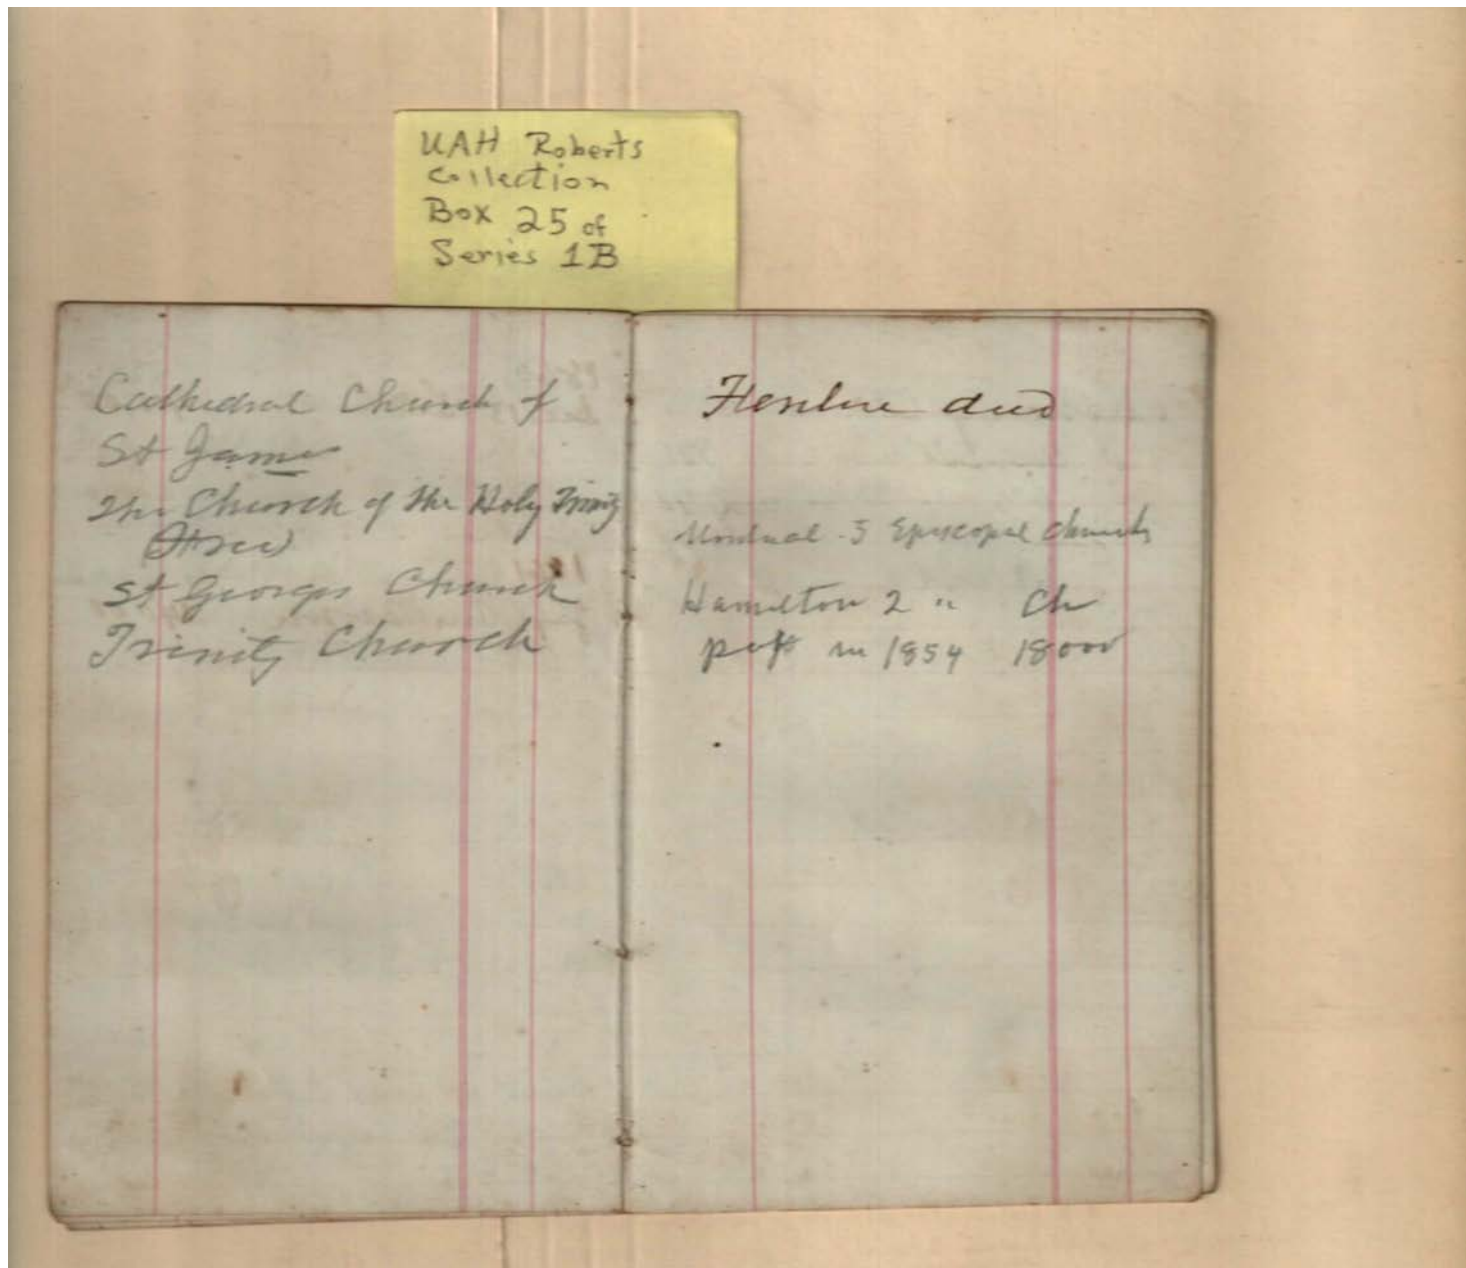 UAH Roberts
Collection
Box 25 of
Series 1B
Cathedral Church of
St James
The Church of the Holy Trinity
(Free)
St Georges Church
Trinity Church
deed
Montreal 5 Episcopal churches
Hamilton 2 " Ch
in 1854 18000